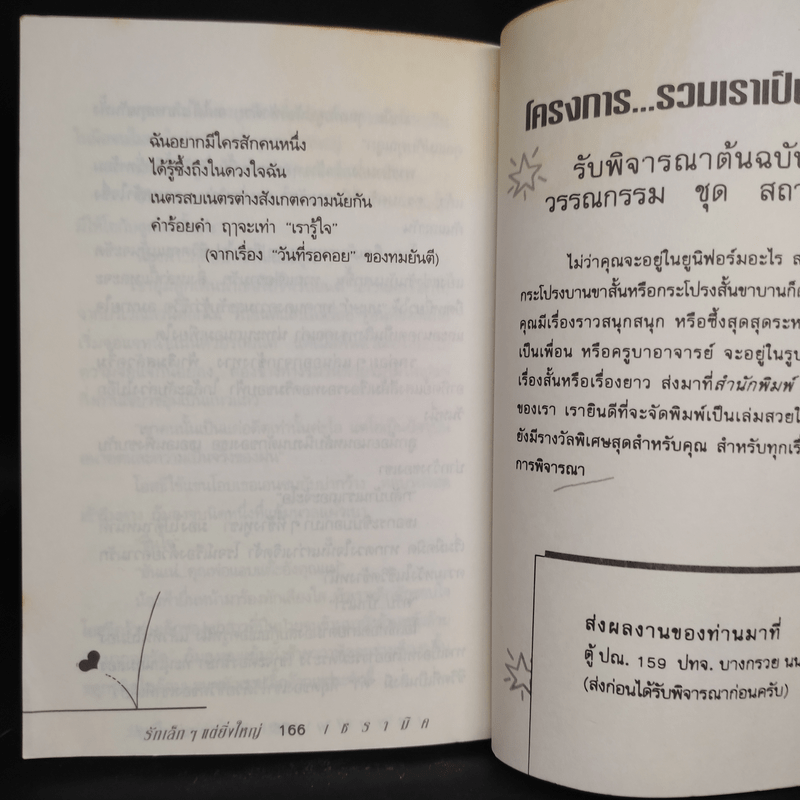 ฉันอยากมีใครสักคนหนึ่ง
ได้รู้ซึ้งถึงในดวงใจฉัน
เนตรสบเนตรต่างสังเกตความนัยกัน
คำร้อยคำ ฤๅจะเท่า “เรารู้ใจ”
(จากเรื่อง “วันที่รอคอย” ของทมยันตี)
รักเล็ก ๆ แต่ยิ่งใหญ่ 166 เธรามิค
โครงการ...รวมเราเป็น
รับพิจารณาต้นฉบับ
วรรณกรรม ชุด สถา
ไม่ว่าคุณจะอยู่ในยูนิฟอร์มอะไร
กระโปรงบานขาสั้นหรือกระโปรงสั้นขาบานก็
คุณมีเรื่องราวสนุกสนุก หรือซึ้งสุดสุดระห
เป็นเพื่อน หรือครูบาอาจารย์ จะอยู่ในรูป
เรื่องสั้นหรือเรื่องยาว ส่งมาที่สำนักพิมพ์
ของเรา เรายินดีที่จะจัดพิมพ์เป็นเล่มสวยใ
ยังมีรางวัลพิเศษสุดสำหรับคุณ สำหรับทุกเรื่
การพิจารณา
ส่งผลงานของท่านมาที่
ตู้ ปณ. 159 ปทจ. บางกรวย นน
(ส่งก่อนได้รับพิจารณาก่อนครับ)